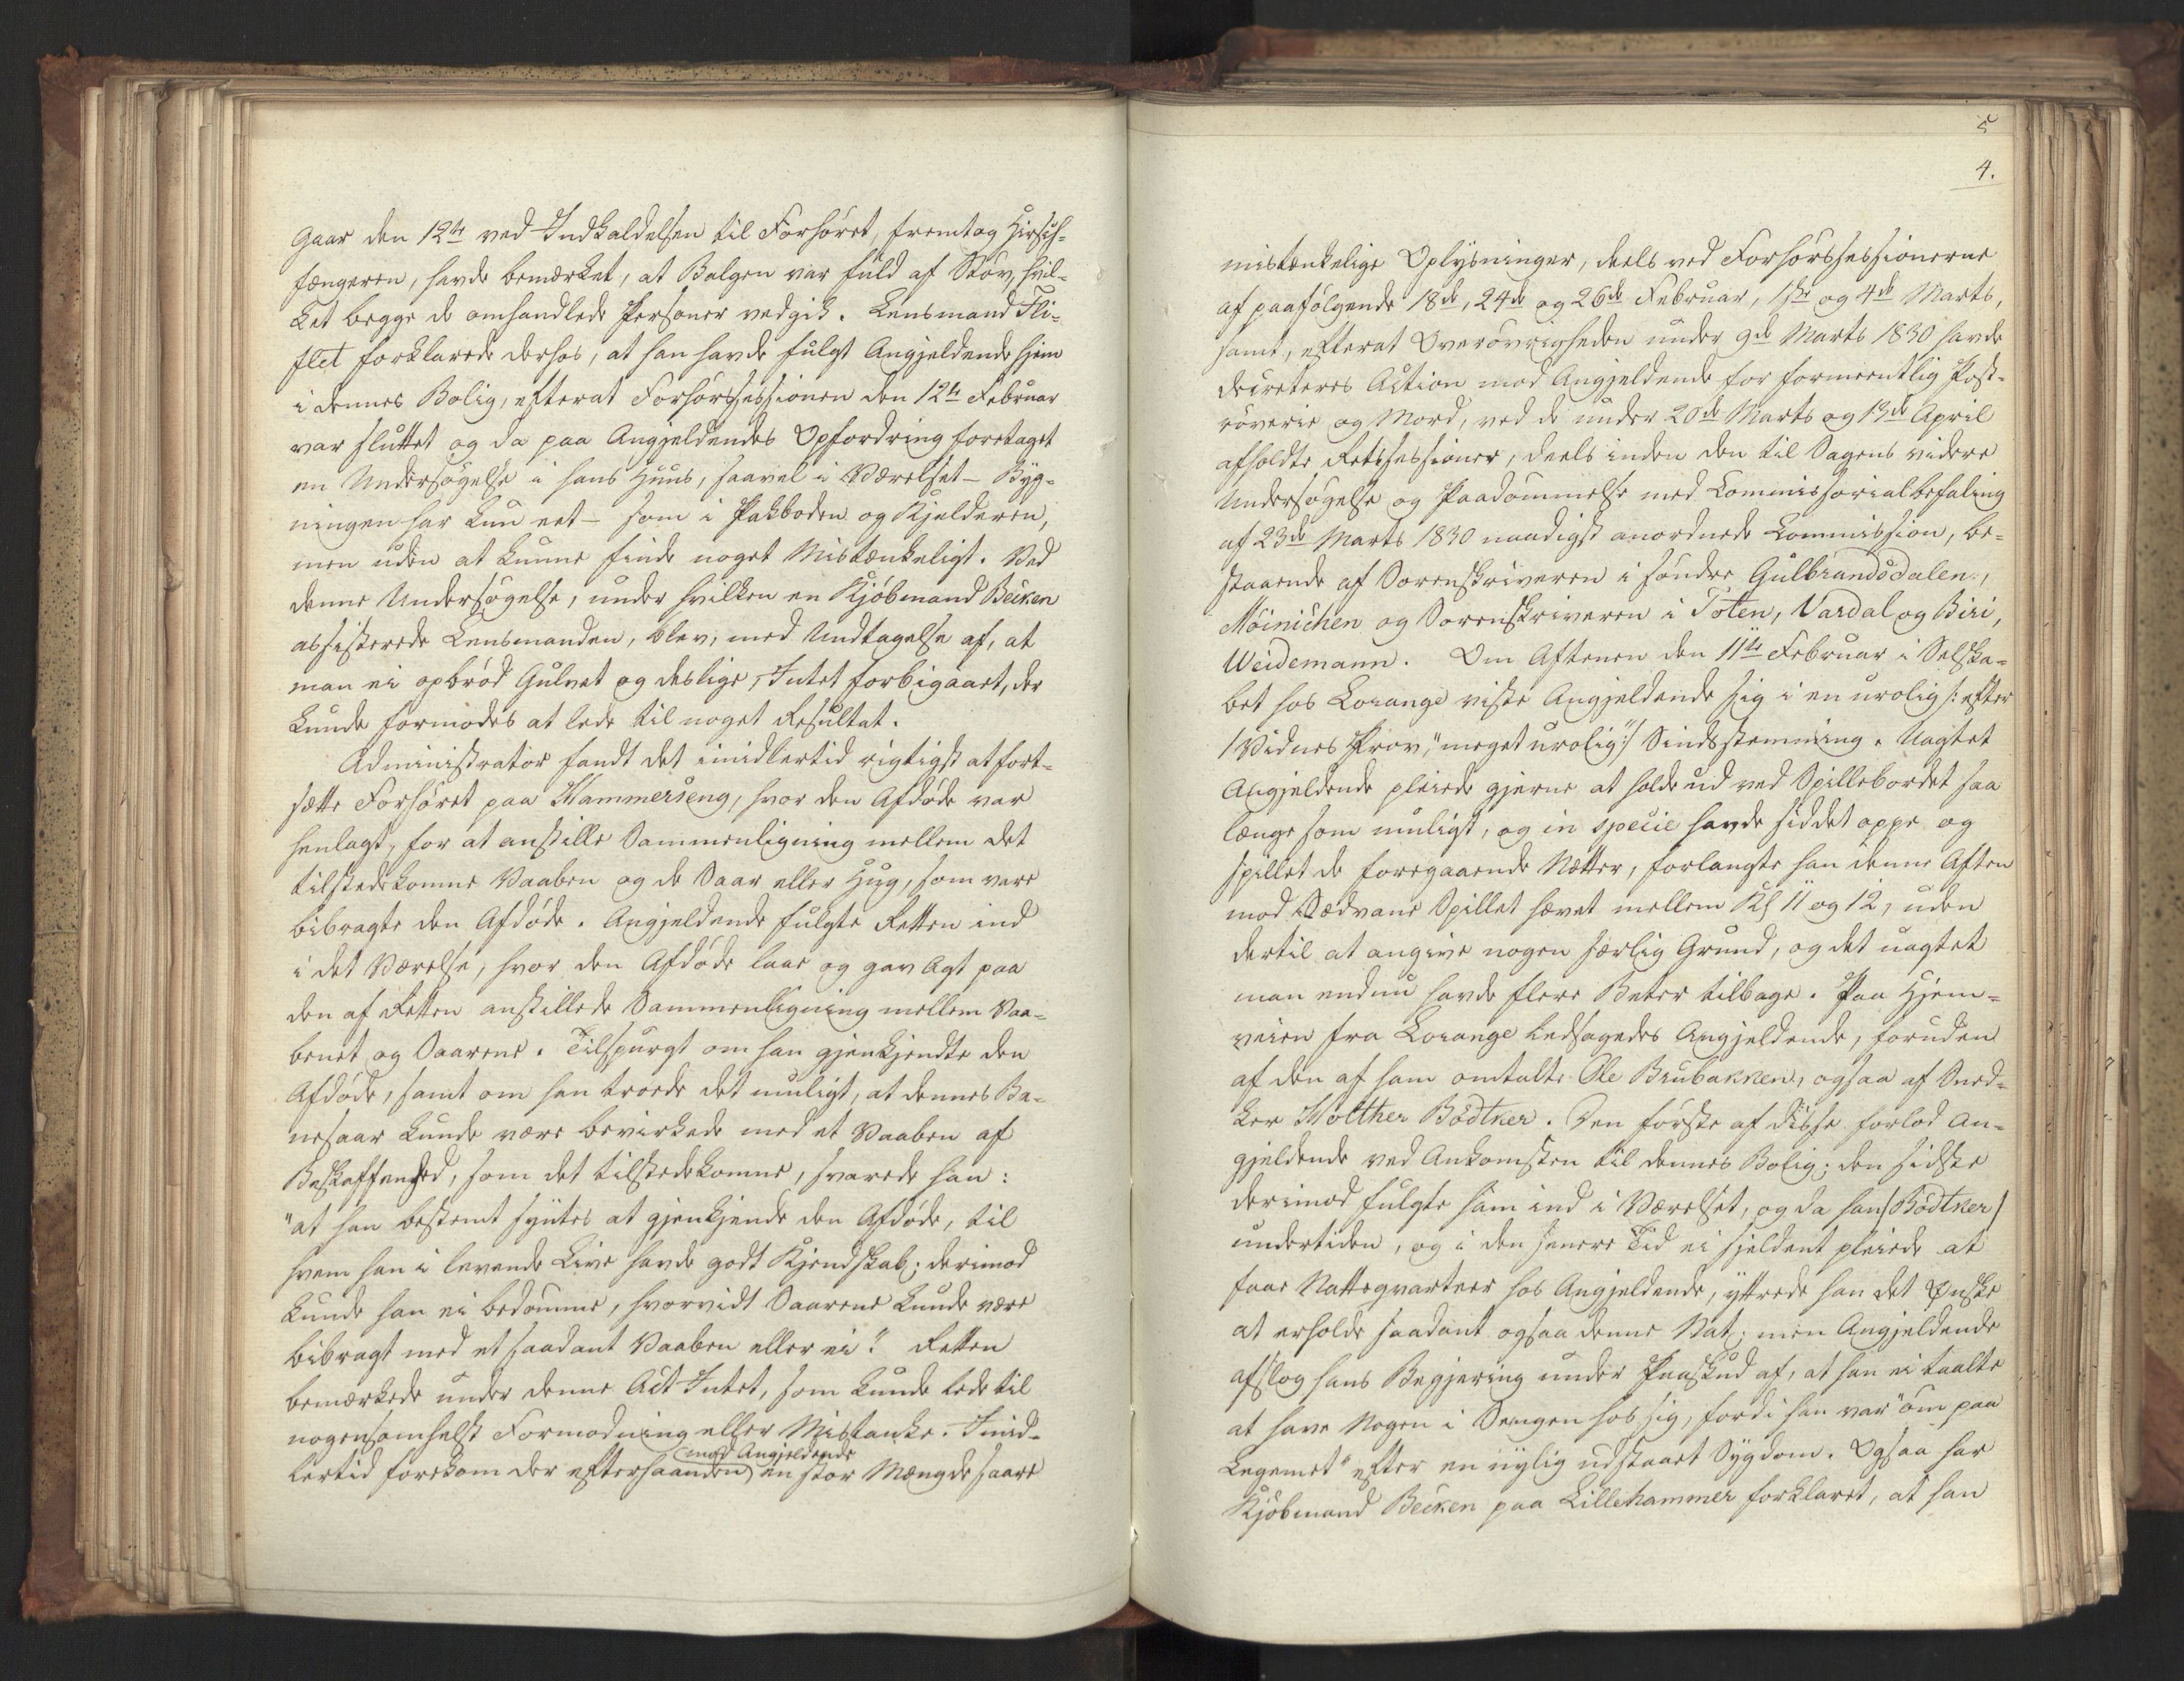 gaar den 12te ved Indkaldelsen til Forhöret, fremtog Hirsch-
fængeren, havde bemærket, at Balgen var fuld af Stöv, hvil-
ket begge de omhandlede Personer vedgik. Lensmand Fli-
flet forklarede derhos, at han havde fulgt Angjeldende hjem
i dennes Bolig, efterat Forhörssessionen den 12te Februar
var sluttet og da paa Angjeldendes Opfordring foretaget
en Undersögelse i hans Huus, saavel i Værelset – Byg-
ningen har kun eet – som i Pakboden og Kjelderen,
men uden at kunne finde noget Mistænkeligt. Ved
denne Undersögelse, under hvilken en Kjöbmand Becken
assisterede Lensmanden, blev, med Undtagelse af, at
man ei opbröd Gulvet og deslige, Intet forbigaaet, der
kunde formodes at lede til noget Resultat.
Administrator fandt det imidlertid rigtigst at fort-
sætte Forhöret paa Hammerseng, hvor den Afdöde var
henlagt, for at anstille Sammenligning mellem det
tilstedekomne Vaaben og de Saar eller Hug, som vare
bibragte den Afdöde. Angjeldende fulgte Retten ind
i det Værelse, hvor den Afdöde laae og gav Agt paa
den af Retten anstillede Sammenligning mellem Vaa-
benet og Saarene. Tilspurgt om han gjenkjendte den
Afdöde, samt om han troede det muligt, at dennes Ba-
nesaar kunde være bevirkede med et Vaaben af
Beskaffenhed, som det tilstedekomne, svarede han:
"at han bestemt syntes at gjenkjende den Afdöde, til
hvem han i levende Live havde godt Kjendskab; derimod
kunde han ei bedömme, hvorvidt Saarene kunde være
bibragt med et saadant Vaaben eller ei". Retten
bemærkede under denne Act Intet, som kunde lede til
nogensomhelst Formodning eller Mistanke. Imid-
mod Angjeldende
lertid forekom der efterhaanden en stor Mængde saare
5
4.
mistænkelige Oplysninger, deels ved Forhörssessionerne
af paafölgende 18de, 24de og 26de Februar, 1ste og 4de Marts,
samt, efterat Overövrigheden under 9de Marts 1830 havde
decreteres Action mod Angjeldende for formeentlig Post-
röverie og Mord, ved de under 20de Marts og 13de April
afholdte Retssessioner, deels inden den til Sagens videre
Undersögelse og Paadömmelse med Commissorialbefaling
af 23de Marts 1830 naadigst anordnede Commission, be-
staaende af Sorenskriveren i söndre Gulbrandsdalen,
Möinichen og Sorenskriveren i Toten, Vardal og Biri,
Weidemann. Om Aftenen den 11te Februar i Selska-
bet hos Lorange viste Angjeldende sig i en urolig /: efter
1 Vidnes Prov, "meget urolig" :/ Sindsstemning. Uagtet
Angjeldende pleiede gjerne at holde ud ved Spillebordet saa
længe som muligt, og in specie havde siddet oppe og
spillet de foregaaende Nætter, forlangte han denne Aften
mod Sædvane Spillet hævet mellem Kl 11 og 12, uden
dertil at angive nogen særlig Grund, og det uagtet
man endnu havde flere Beter tilbage. Paa Hjem-
veien fra Lorange ledsagedes Angjeldende, foruden
af den af ham omtalte Ole Brubakken, ogsaa af Sned-
ker Holther Bödtker. Den förste af disse forlod An-
gjeldende ved Ankomsten til dennes Bolig; den sidste
derimod fulgte ham ind i Værelset, og da han /Bödtker/
undertiden, og i den senere Tid ei sjeldent pleiede at
faae Natteqvarteer hos Angjeldende, yttrede han det Ønske
at erholde saadant ogsaa denne Nat; men Angjeldende
afslog hans Begjering under Paaskud af, at han ei taalte
at have Nogen i Sengen hos sig, fordi han var "öm paa
Legemet" efter en nylig udstaaet Sygdom. Ogsaa har
Kjöbmand Becken paa Lillehammer forklaret, at han